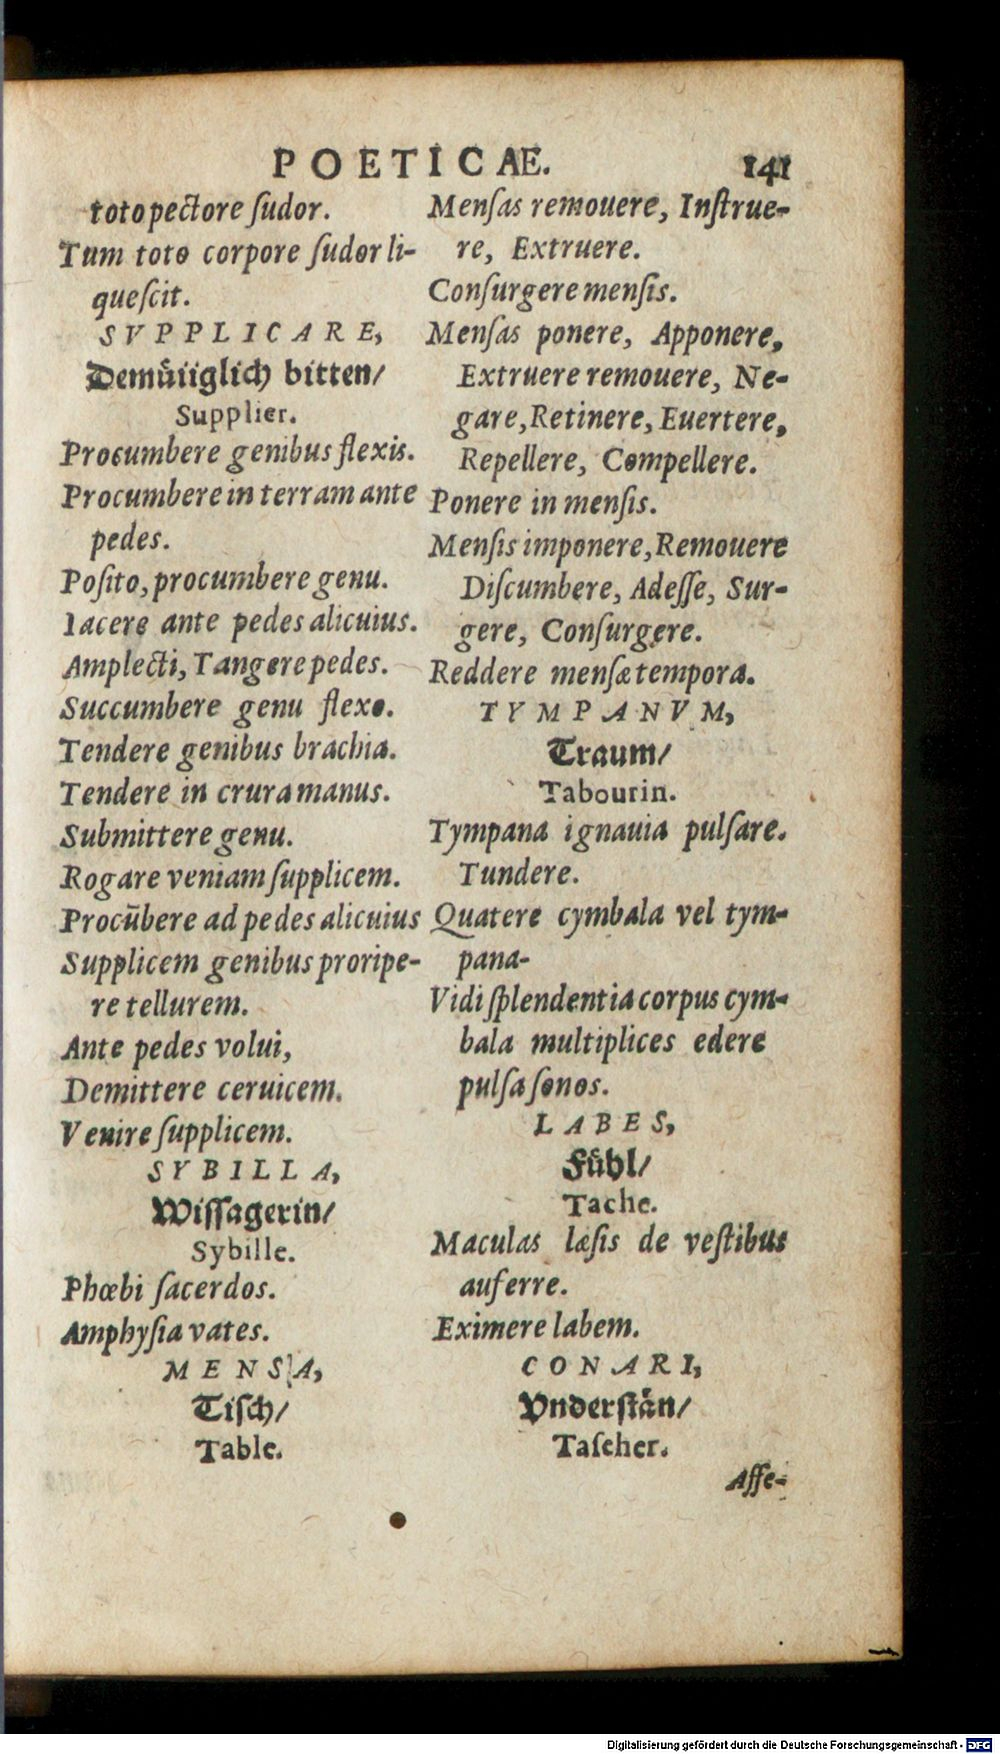 POETICAE. 141
toto pectore ſudor.
Tum toto corpore ſudor li-
queſcit.
SVPPLICARE,
Demüiiglich bitten/
Supplier.
Procumbere genibus flexis.
Procumbere in terram ante
pedes.
Poſito, procumbere genu.
Iacere ante pedes alicuius.
Amplecti, Tangere pedes.
Succumbere genu flexo.
Tendere genibus brachia.
Tendere in crura manus.
Submittere genu.
Rogare veniam ſupplicem.
Procūbere ad pedes alicuius
Supplicem genibus proripe-
re tellurem.
Ante pedes volui,
Demittere ceruicem.
Venire ſupplicem.
SYBILLA,
Wiſſagerin/
Sybille.
Phœbi ſacerdos.
Amphyſia vates.
MENSA,
Tiſch/
Table.
Menſas remouere, Inſtrue-
re, Extruere.
Conſurgere menſis.
Menſas ponere, Apponere,
Extruere remouere, Ne-
gare, Retinere, Euertere,
Repellere, Compellere.
Ponere in menſis.
Menſis imponere, Remouere
Diſcumbere, Adeſſe, Sur-
gere, Conſurgere.
Reddere menſæ tempora.
TYMPANVM,
Traum/
Tabourin.
Tympana ignauia pulſare.
Tundere.
Quatere cymbala vel tym-
pana-
Vidi ſplendentia corpus cym-
bala multiplices edere
pulſa ſonos.
LABES,
Fåhl/
Tache.
Maculas læſis de veſtibus
auferre.
Eximere labem.
CONARI,
Vnderſtån/
Taſcher.
Aſſe-
Digitalisierung gefördert durch die Deutsche Forschungsgemeinschaft - DFG